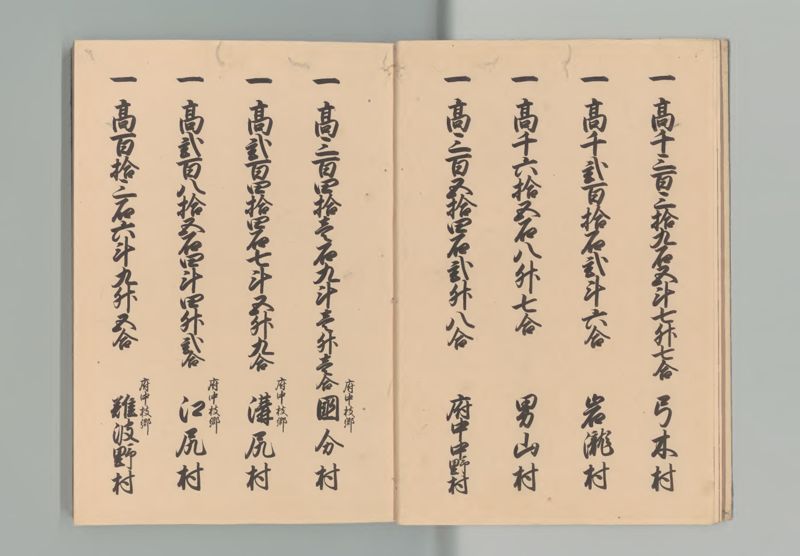 一 高千三百三拾九石五斗七升七合 弓木村
一 高千弐百拾石弐斗六合 岩瀧村
一 高千六拾五石八升七合 男山村
一 高三百五拾四石弐升八合 府中中野村
一 高三百四拾壱石九斗壱升壱合 府中枝郷 國分村
一 高弐百四拾四石七斗五升九合 府中枝郷 溝尻村
一 高弐百八拾五石四斗四升弐合 府中枝郷 江尻村
一 高百拾三石六斗九升五合 府中枝郷 難波野村